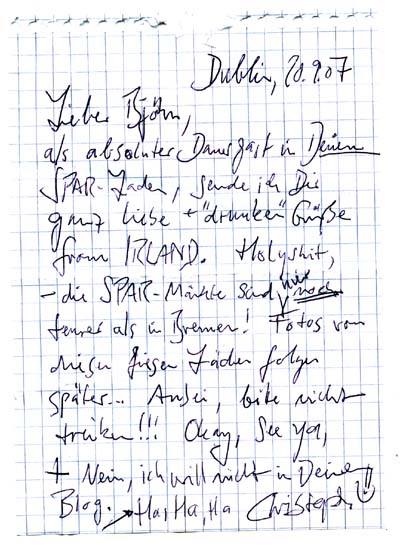 Dublin, 20.9.07
Lieber Björn,
als absoluter Dauergast in Deinem
SPAR-Laden, sende ich Dir
ganz liebe + "drunken" Grüße
from IRLAND. Holyshit,
- die SPAR-Märkte sind hier noch
teurer als in Bremen! Fotos von
diesen fiesen Läden folgen
später... Anbei, bitte nicht
trinken!!! Okay, See ya,
+ Nein, ich will nicht in Deinen
Blog. → Ha, Ha, Ha Christoph